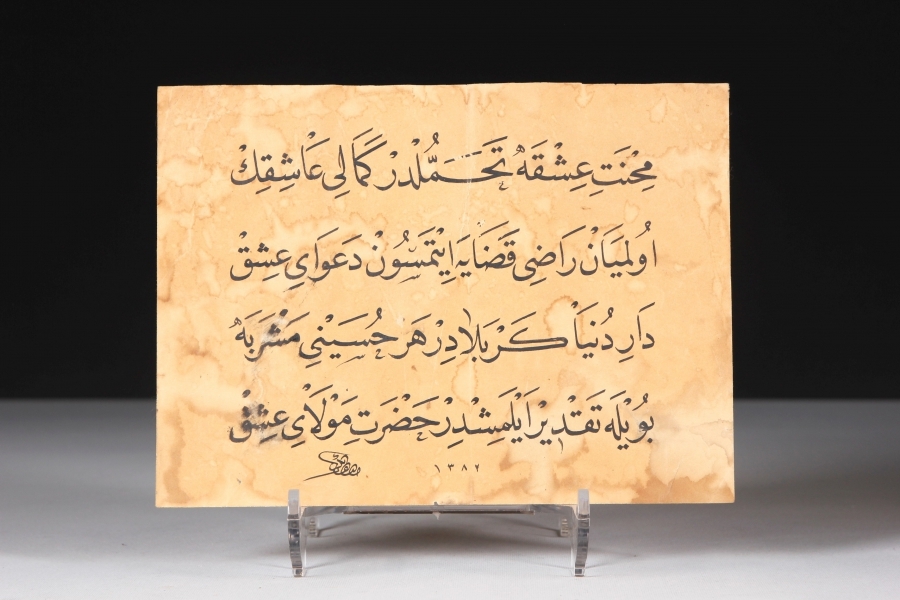 مِحْنَتِ عِشْقَهْ تَحَمُّلْدَرْ كَمَالِى عَاشِقِكْ
اُولمِيَانْ رَاضِى قَضَايَه اِيْتمَسُونْ دَعَوَاىِ عِشِقْ
دَارِ دُنْيَا كَرْبَلَادِرْ هَر حُسَيْنِى مَشْرَبَهْ
بُويْلَه تَقْدِيرْ اَيْلَمِشْدِرْ حَضْرَتِ مَوْلَاىِ عِشِقْ
١٣٨٢